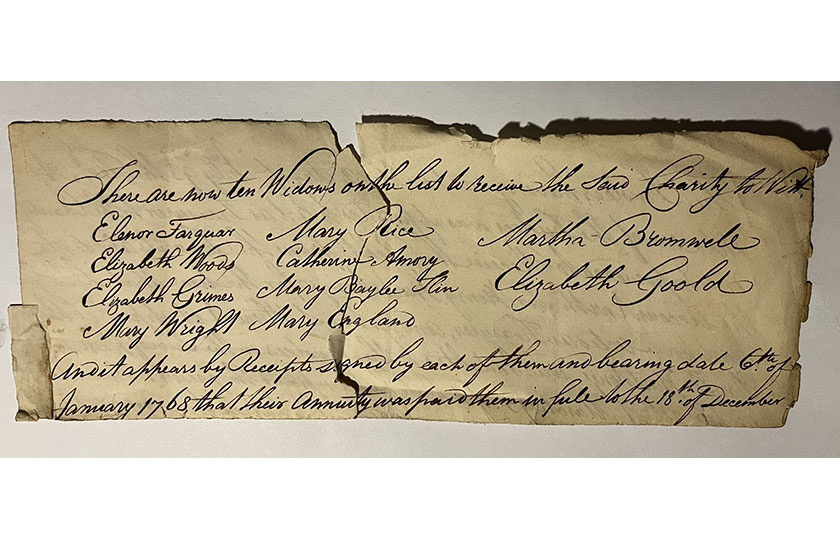 There are now ten Widows on the list to receive the said Charity to Witt.
Elenor Farquar Mary Rice Martha Bromwell
Elizabeth Woods Catherine Amory Elizabeth Goold
Elizabeth Grimes Mary Baylee
Mary Wright Mary England
And it appears by Receipts signed by each of them and bearing date 6th of
January 1768 that their Annuity was paid them in full to the 18th of December